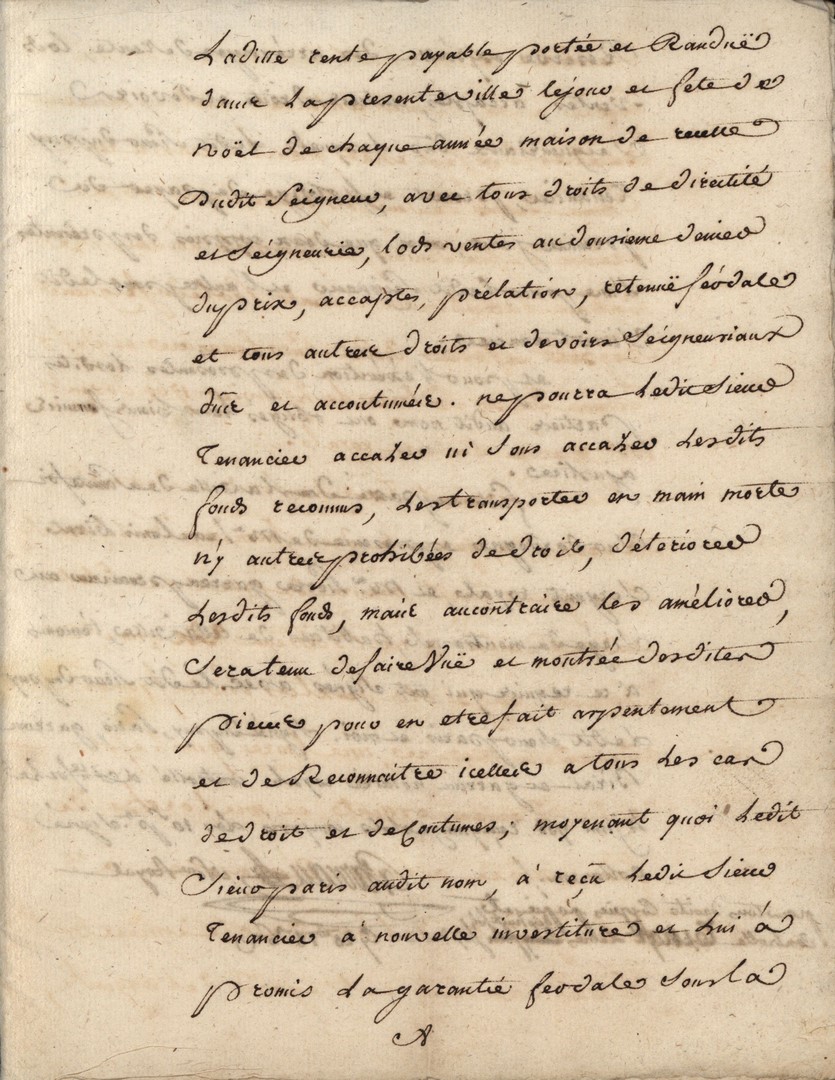 Laditte rente payable portée et Randuë
dans la presente ville le jour et fete de
noël de chaque année maison de recette
Dudit Seigneur, avec tous droits de directité
et Seigneurie, lods ventes au dousieme denier
du prix, accaptes, prélation, retenuë féodale
et tous autres droits et devoirs Seigneuriaux
dûs et accoutumés. ne pourra ledit Sieur
Tenancier accazer ni sous accazer lesdits
fonds reconnus, les transporter en main morte
n'y autres prohibées de droit, déteriorer
lesdits fonds, mais au contraire les améliorer,
Sera tenu de faire Vuë et montrée desdites
pieces pour en etre fait arpentement
et de Reconnaitre icelles a tous les cas
de droit et de Coutumes; moyenant quoi ledit
Sieur paris audit nom, à reçu ledit Sieur
Tenancier à nouvelle investiture et lui á
promis la garantié feodale sous la